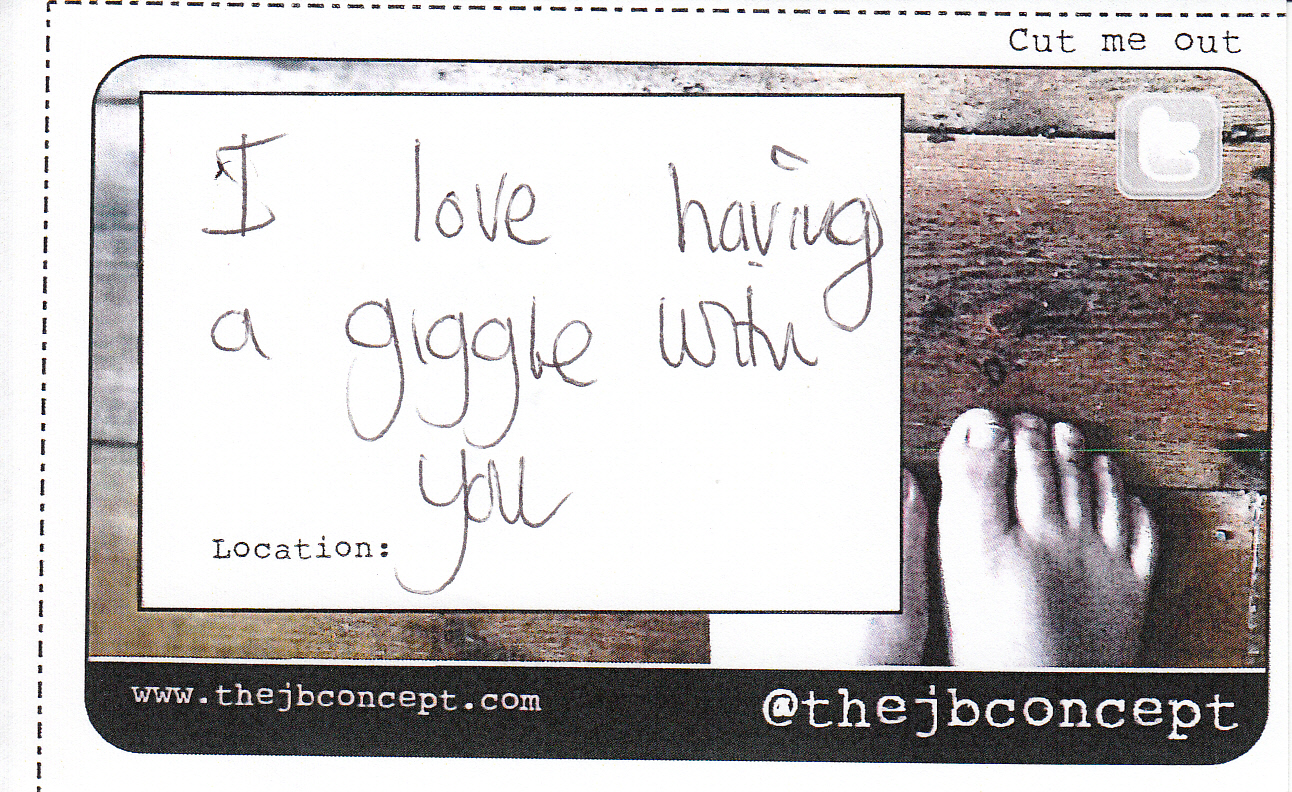 Cut me out
I love having
a giggle with
you
Location:
www.thejbconcept.com
@thejbconcept